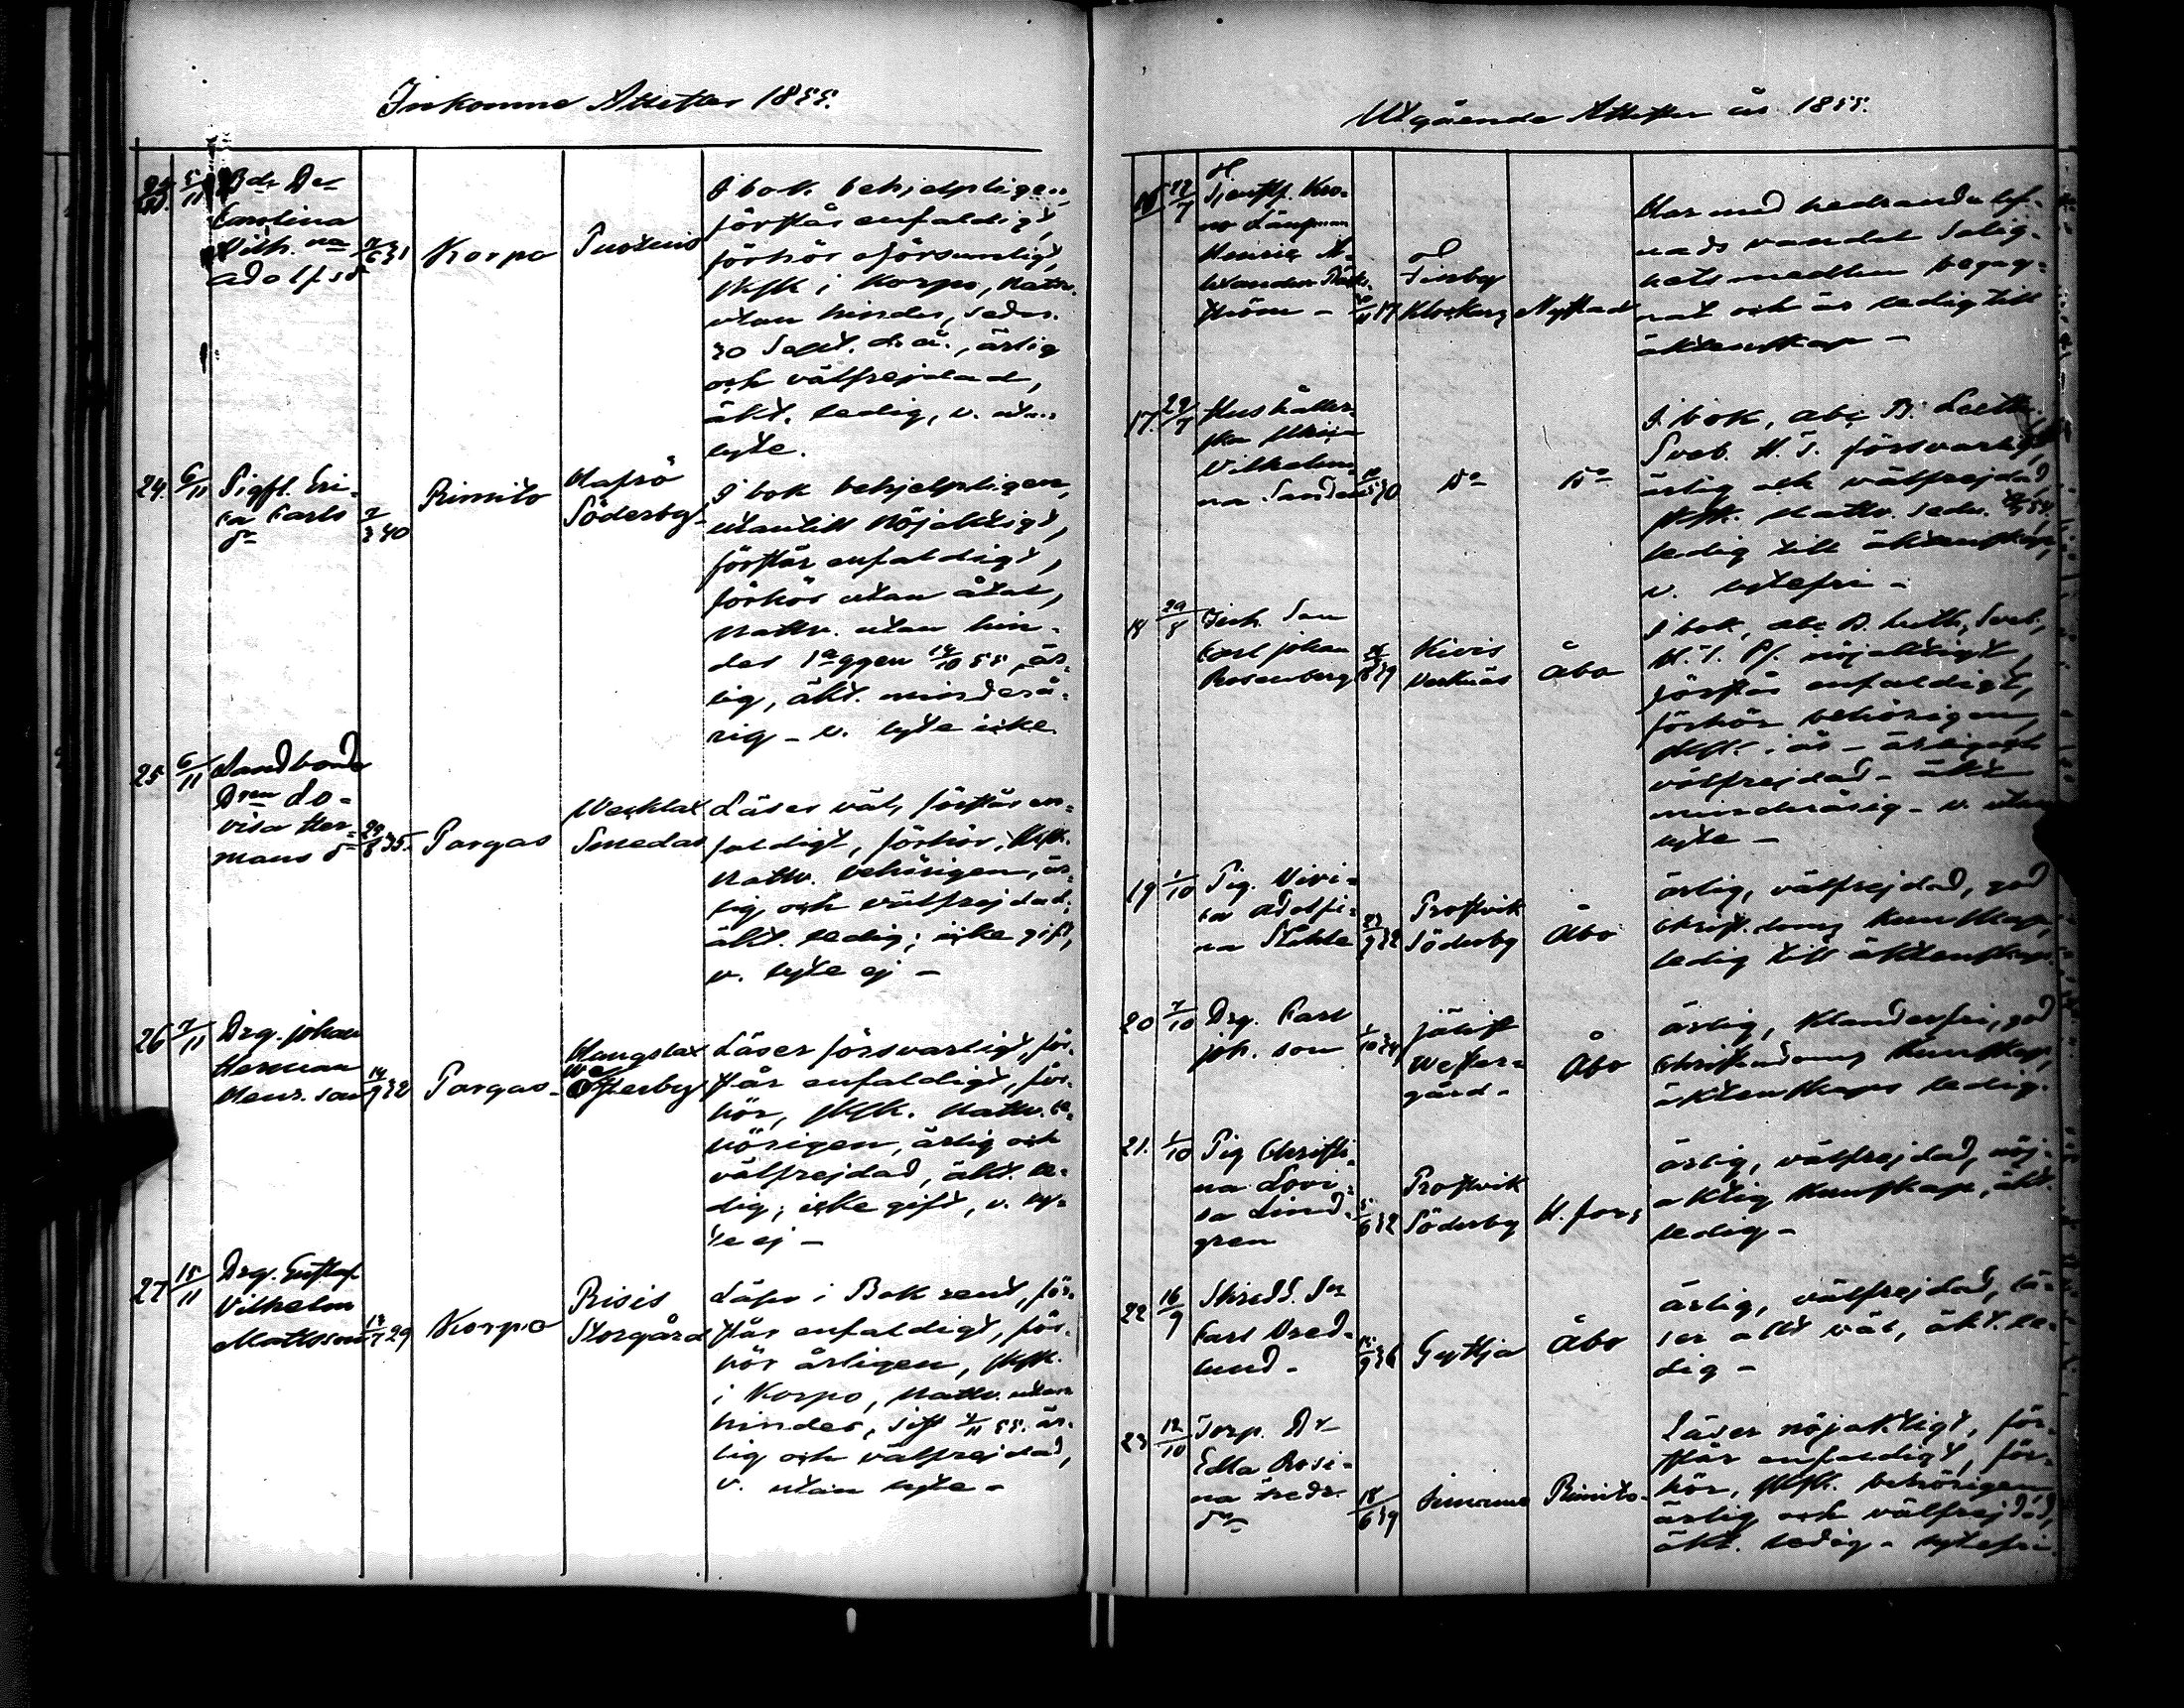 Inkomne Attester 1855.
23. 5/11 Bd. Dr
Carolina
Vilh.na
Adolfsdr
7/6 31 Korpo
I bok behjelpligen,
förstår enfaldigt,
förhör oförsumligt,
Nattv.
utan hinder, sedn.
30 Sept. d. å., ärlig
och välfrejdad,
äkt. ledig, v. utan
lyte.
24. 6/11 Pigfl. Eri-
ca Carls
dr
7/3 40 Rimito Hafsö
Söderby
I bok behjelpligen,
utantill nöjaktigt,
förstår enfaldigt,
förhör utan åtal,
Nattv. utan hin-
der 14/10 55, är-
lig, äkt. minderå-
rig - v. lyte icke
25 6/11 Landbonde
Dren Lo-
visa Her-
mans dr
29/8 35. Pargas
Smedas
Läser väl, förstår en-
faldigt, förhör,
Nattv. behörigen, är-
lig och välfrejdad;
äkt. ledig; icke gift,
v. lyte ej -
26 7/11 Drg. Johan
Herman
Henr. son
14/9 32 Pargas -
Läser försvarligt, för-
står enfaldigt, för-
hör, Nattv. be-
hörigen, ärlig och
välfrejdad, äkt. le-
dig; icke gift, v. ly-
te ej -
27 15/11 Drg. Gustaf
Vilhelm
Mattsson
29 Korpo Risis
Storgård
Läser i Bok rent, för-
står enfaldigt, för-
hör årligen,
i Korpo, Nattv. utan
hinder, sist 4/11 55. är-
lig och välfrejdad,
v. utan lyte -
Utgående Attester år 1855.
16 22/7 Tjenstf. Kro-
no Länsman
Henric A-
lexander
ström -
17 Finby
Klockarg Nystad
Har med hedrande lef-
nads vandel Salig-
hets medlen begag-
nat och är ledig till
äktenskap -
17. 29/7 Hushåller-
skan Maja
Vilhelmi-
na
Do Do
I bok, abc B. Luth.
Sveb. H. T. försvarligt,
ärlig och välfrejdad,
Nattv. sedn.
ledig till äktenskap,
v. lytefri -
18 29/8 Inh. Son
Carl Johan
Rosenberg
39 Kivis
Verknäs Åbo
I bok, abc B. Luth, Sveb,
H. T. Ps. nöjaktigt,
förstår enfaldigt,
förhör behörigen,
i år - ärlig och
välfrejdad - äkt.
minderårig - v. utan
lyte -
19 1/10 Pig. Vivi-
ca Adolfi-
na Ståhle
23/9 32 Prostvik
Söderby Åbo
ärlig, välfrejdad, god
christ.doms kunskap,
ledig till äktenskap.
20 7/10 Drg. Carl
Joh. son
Jälist
Wester-
gård - Åbo
ärlig, klanderfri, god
christendoms kunskap,
äktenskaps ledig.
21. 1/10 Pig Christi-
na Lovi-
sa Lind-
gren
5/6 32 Prostvik
Söderby H.fors
ärlig, välfrejdad, nöj-
aktig kunskap, äkt.
ledig -
22 16/9 Skredd. Sn
Carl Vred-
lund -
36 Gyttja Åbo
ärlig, välfrejdad, lä-
ser allt väl, äkt. le-
dig -
23 12/10 Torp. Dr
Edla Rosi-
na Fredr.
dr
18/6 39 Simonna Rimito -
Läser nöjaktigt, för-
står enfaldigt, för-
hör, behörigen,
ärlig och välfrejdad,
äkt. ledig - lytefri